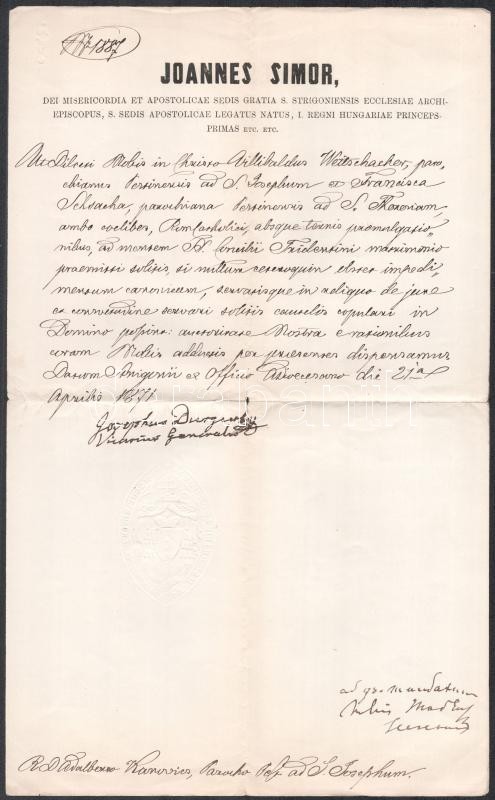 1887
JOANNES SIMOR,
DEI MISERICORDIA ET APOSTOLICAE SEDIS GRATIA S. STRIGONIENSIS ECCLESIAE ARCHI-
EPISCOPUS, S. SEDIS APOSTOLICAE LEGATUS NATUS, I. REGNI HUNGARIAE PRINCEPS-
PRIMAS ETC. ETC.
Ut Dilecti Nobis in Christo Villibaldus Weitschacher, paro-
chianus Pestinensis ad S. Josephum et Francisca
parochiana Pestinensis ad S. Theresiam,
ambo coelibes, Rom. Catholici, absque ternis promulgatio-
nibus, ad mentem S. Concilii Tridentini matrimonio
praemitti solitis, si nullum ceteroquin obstet impedi-
mentum canonicum, servatisque in reliquo de jure
et consuetudine servari solitis cautelis copulari in
Domino possint: auctoritate Nostra e rationibus
coram Nobis adductis per praesentes dispensamus
Datum Strigonii ex Officio Dioecesano die 21a
Aprilis 1871.
Josephus
Vicarius Generalis
ad gr. mandatum
R. D. Adalberto Kanovics, Parocho Pest. ad S. Josephum.